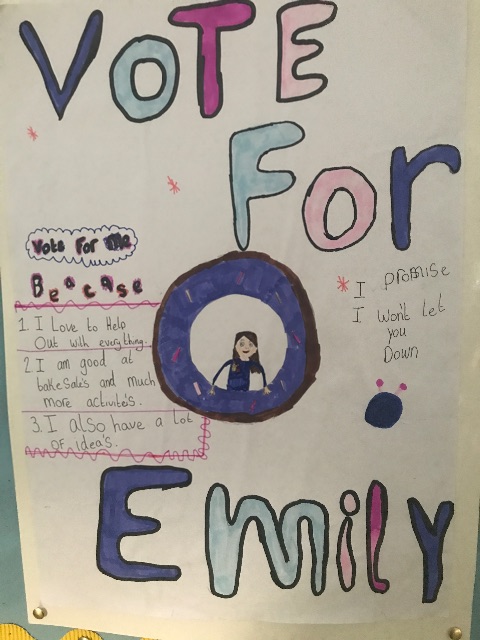 VOTE
For
Vote For Me
Beacase
1. I Love to Help
Out with everything.
2 I am good at
bakesale's and much
more activite's.
3. I also have a lot
OF idea's.
I promise
I Won't Let
You
Down
Emily